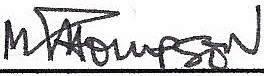 M Thompson